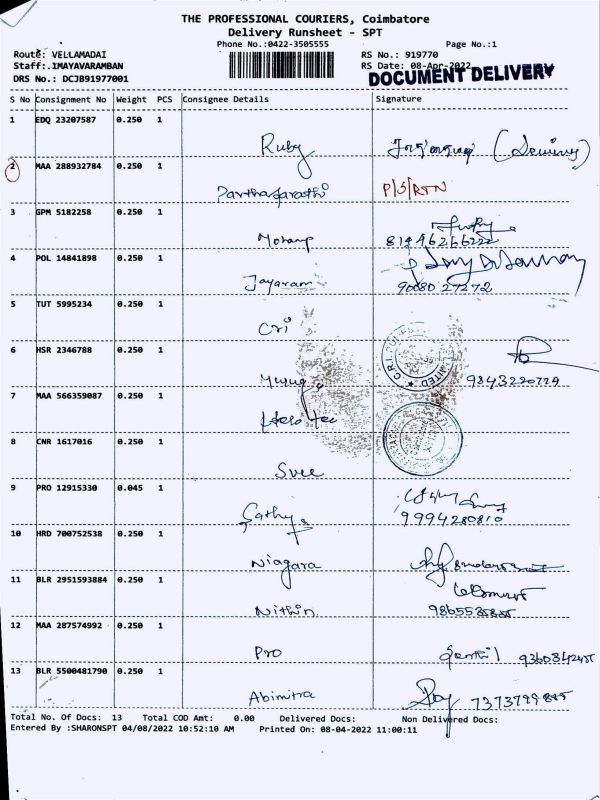 THE PROFESSIONAL COURIERS, Coimbatore
Delivery Runsheet - SPT
Phone No.:0422-3505555
Page No.:1
Route: VELLAMADAI
RS No.: 919770
Staff: IMAYAVARAMBAN
RS Date: 08-Apr-2022
DRS No.: DCJB91977001
DOCUMENT DELIVERY
S No Consignment No Weight PCS Consignee Details Signature
1 EDQ 23207587 0.250 1
Ruby
2 MAA 288932784 0.250 1
Parthasarathi P/S/RTN
3 GPM 5182258 0.250 1
Mohan 8144626622
4 POL 14841898 0.250 1
Jayaram 90080 27272
5 TUT 5995234 0.250 1
Cri
6 HSR 2346788 0.250 1
7 MAA 566359087 0.250 1
8 CNR 1617016 0.250 1
Sree
9 PRO 12915330 0.045 1
Sathya 9994280810
10 HRD 700752538 0.250 1
Niagara
11 BLR 2951593884 0.250 1
Nithin
12 MAA 287574992 0.250 1
Pro
13 BLR 5500481790 0.250 1
Abimitra
Total No. Of Docs: 13 Total COD Amt: 0.00 Delivered Docs: Non Delivered Docs:
Entered By :SHARONSPT 04/08/2022 10:52:10 AM Printed On: 08-04-2022 11:00:11